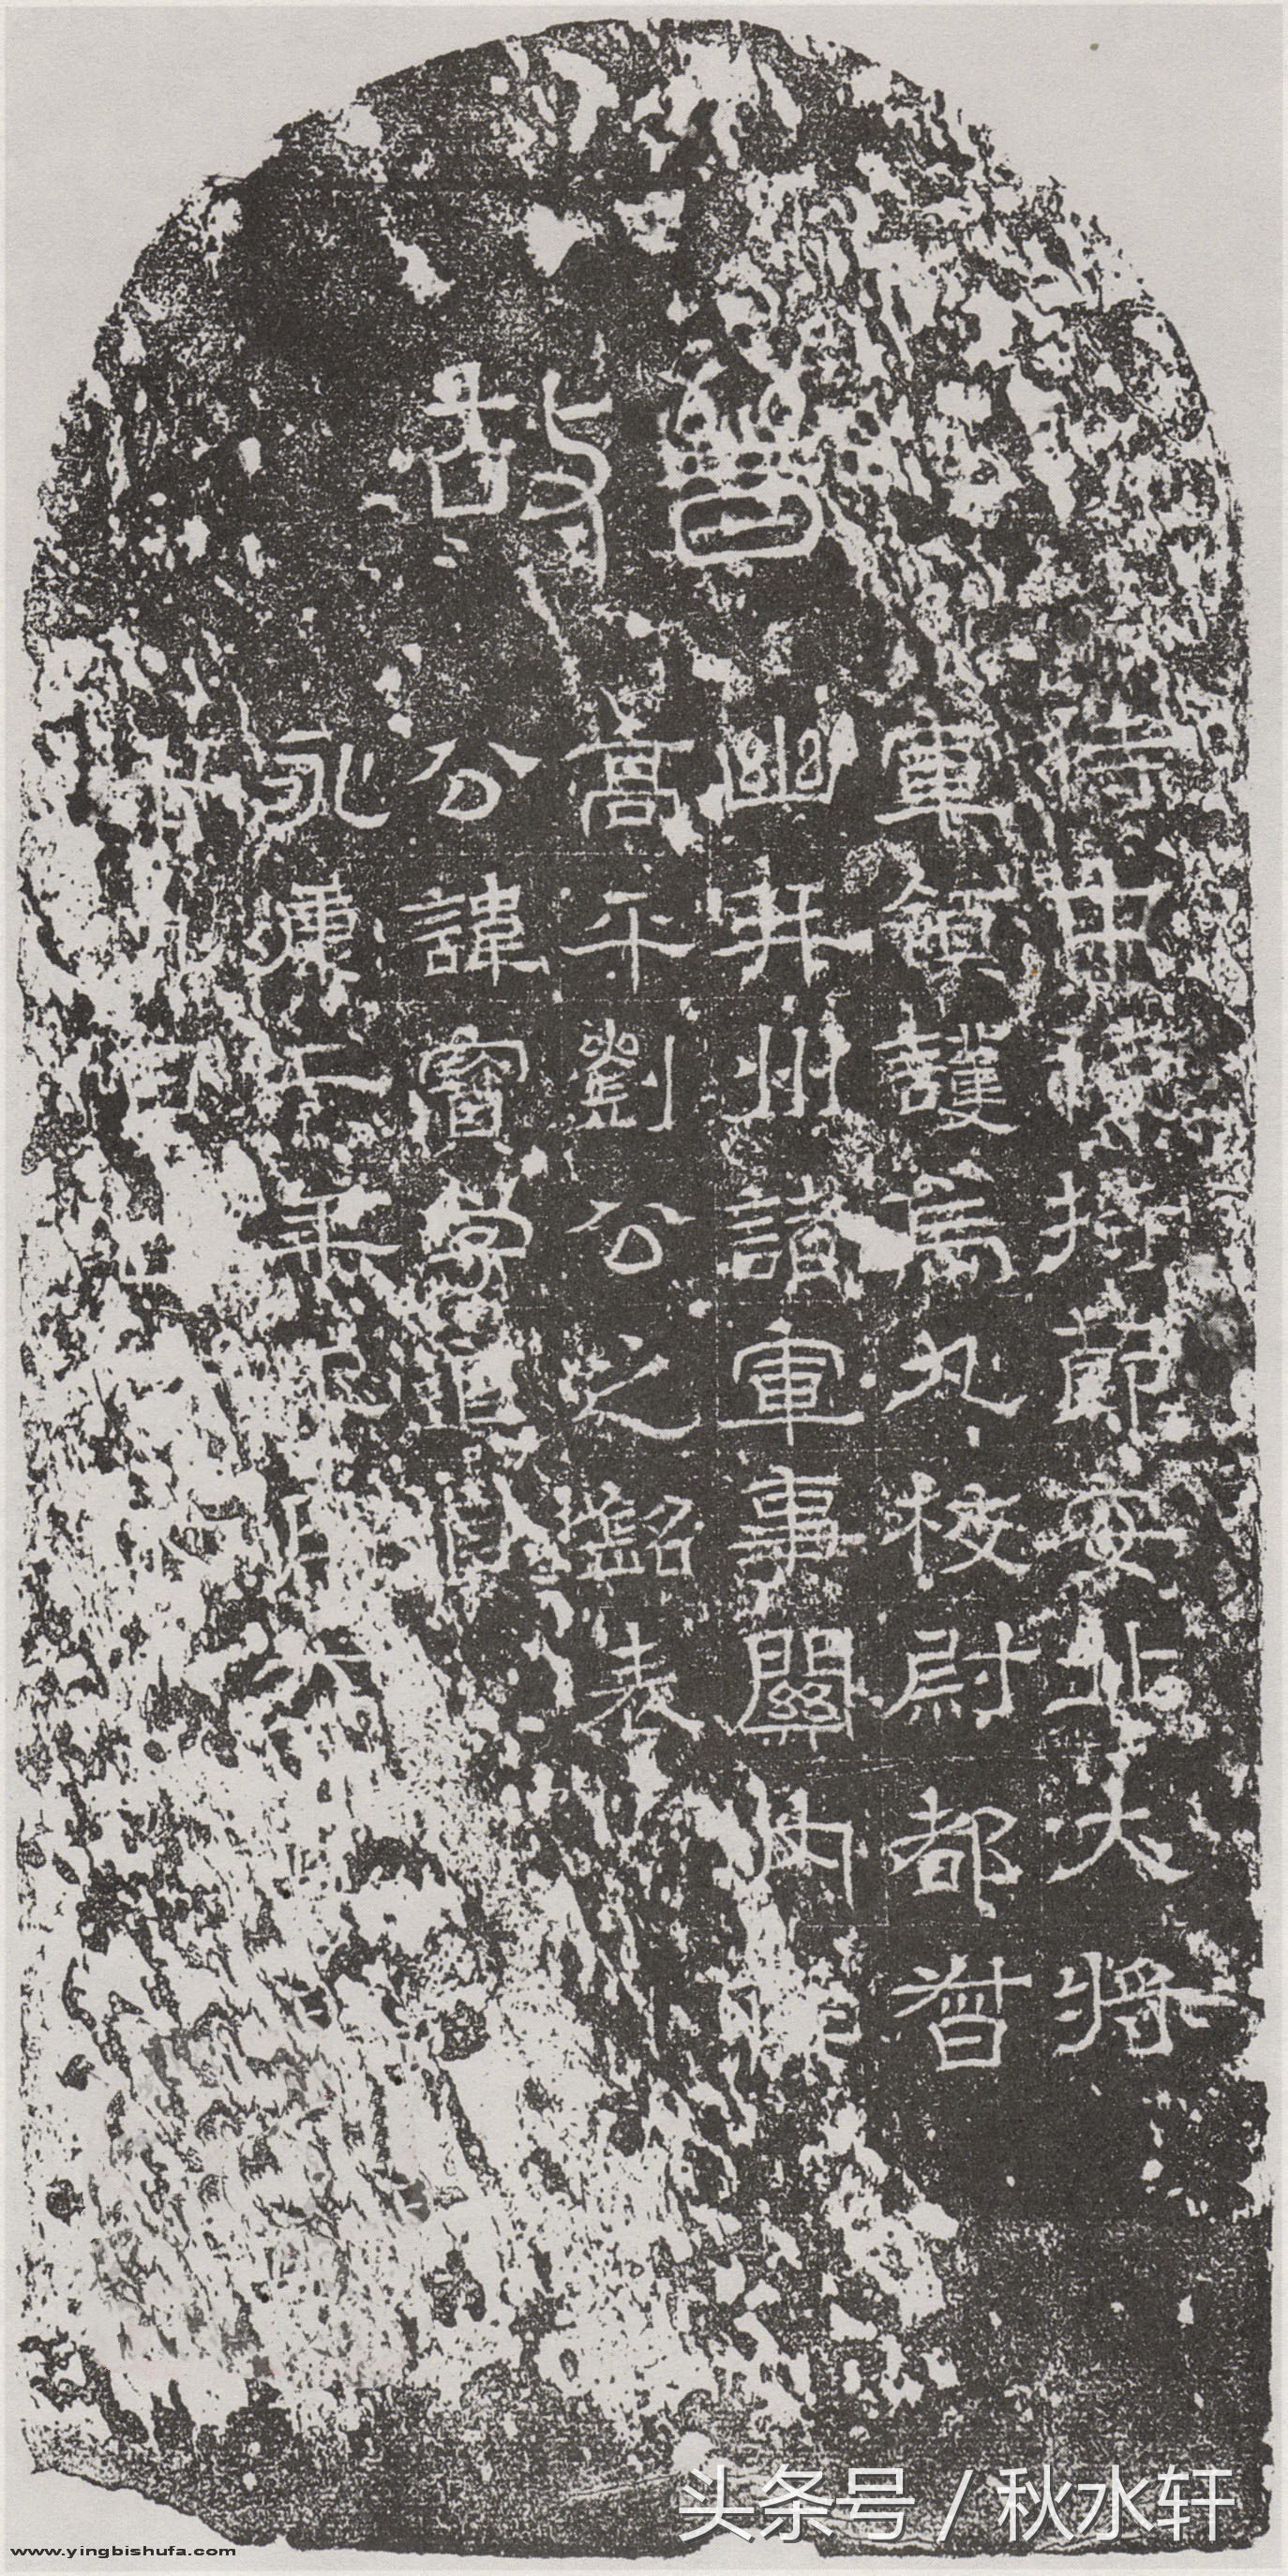 晉故
侍中使持節安北大將
軍領護烏丸校尉都督
幽并州諸軍事關內侯
高平劉公之銘表
公諱寶字道
永康二年正月
头条号 / 秋水轩
www.yingbishufa.com